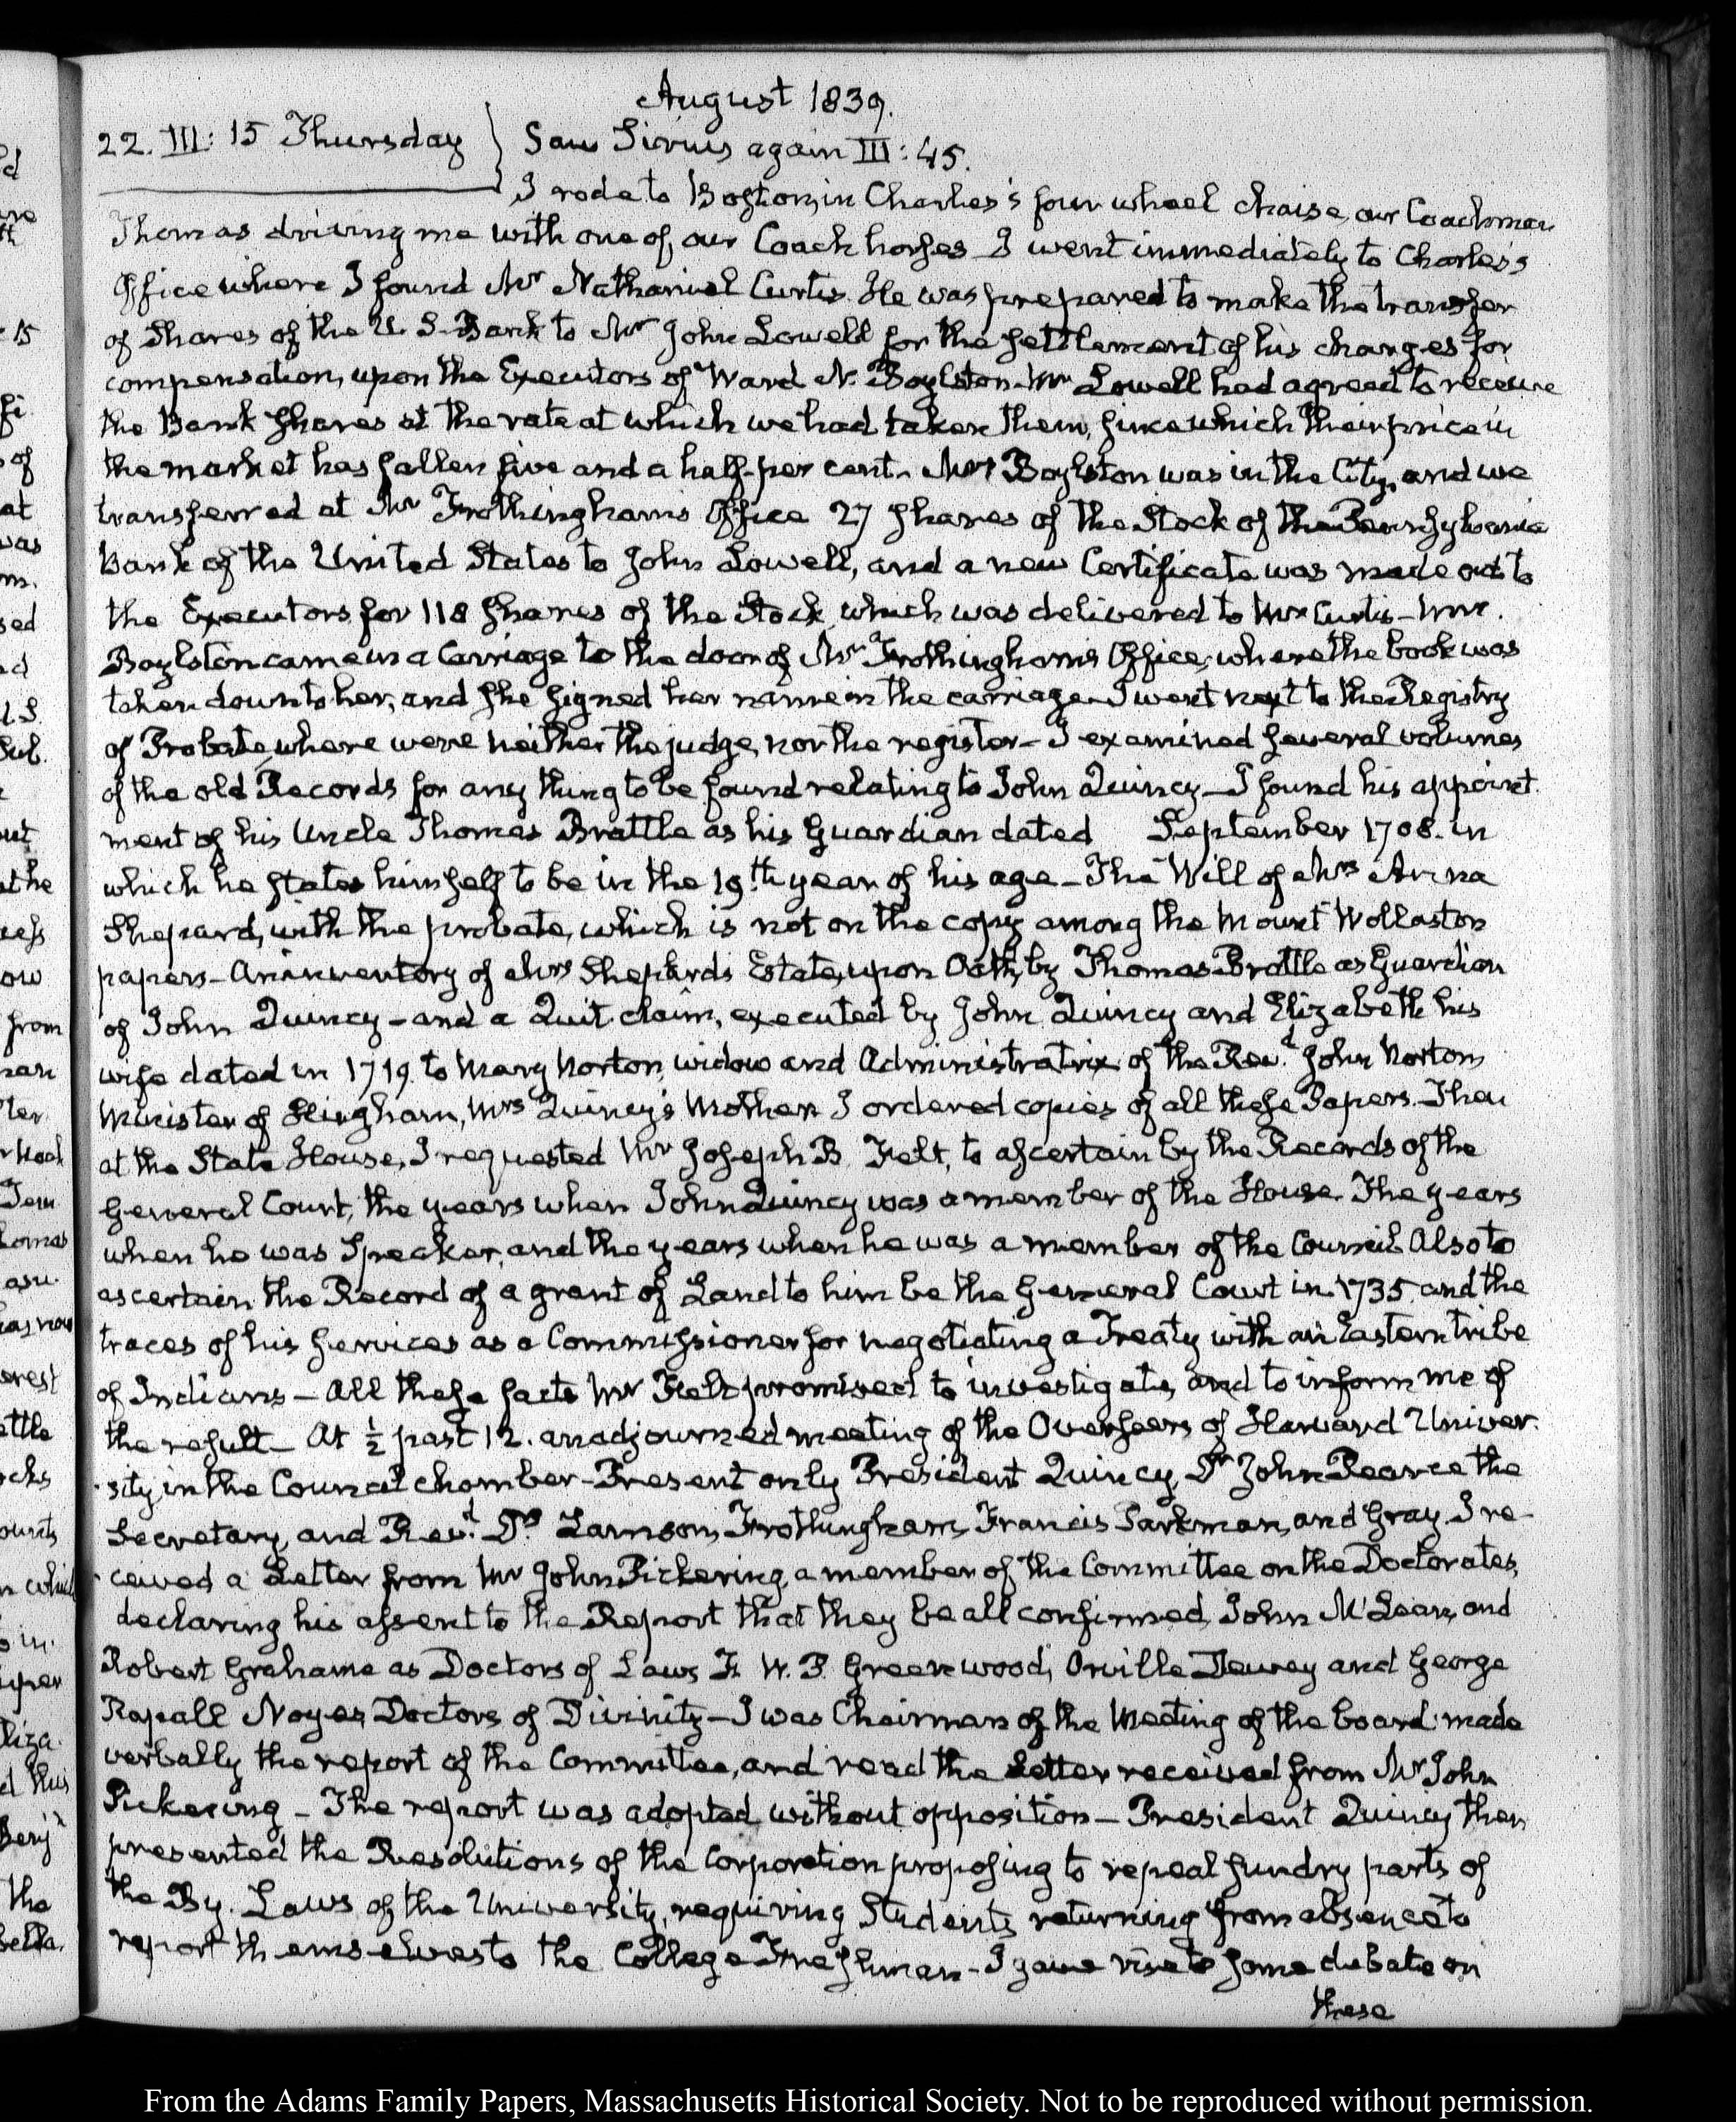 August 1839.
22. III: 15 Thursday } Saw Sirius again III: 45.
I rode to Boston, in Charles's four wheel chaise, our Coachman
Thomas driving me with one of our Coach horses. I went immediately to Charles's
Office where I found Mr Nathaniel Curtis. He was prepared to make the transfer
of Shares of the U. S. Bank to Mr John Lowell for the settlement of his charges for
compensation, upon the Executors of Ward N. Boylston. Mr Lowell had agreed to receive
the Bank shares at the rate at which we had taken them, since which their price in
the market has fallen five and a half per cent. Mrs Boylston was in the City, and we
transferred at Mr Frothingham's Office 27 shares of the Stock of the Pennsylvania
Bank of the United States to John Lowell, and a new Certificate was made out to
the Executors for 118 shares of the Stock, which was delivered to Mr Curtis - Mrs.
Boylston came in a Carriage to the door of Mr Frothingham's Office, where the book was
taken down to her, and she signed her name in the carriage. I went next to the Registry
of Probate, where were neither the judge, nor the register - I examined several volumes
of the old Records for any thing to be found relating to John Quincy - I found his appoint.
ment of his Uncle Thomas Brattle as his Guardian dated September 1708. in
which he states himself to be in the 19th year of his age - The Will of Mrs Anna
Shepard, with the probate, which is not on the copy among the Mount Wollaston
papers - An inventory of Mrs Shepard's Estate, upon Oath, by Thomas Brattle as Guardian
of John Quincy - and a Quit claim, executed by John Quincy and Elizabeth his
wife dated in 1719. to Mary Norton, widow and Administratrix of the Revd. John Norton,
Minister of Hingham, Mrs Quincy's Mother. I ordered copies of all these Papers. Then
at the State House, I requested Mr Joseph B. Felt, to ascertain by the Records of the
General Court, the years when John Quincy was a member of the House. The years
when he was Speaker, and the years when he was a member of the Council. Also to
ascertain the Record of a grant of Land to him be the General Court in 1735 and the
traces of his services as a Commissioner for negotiating a Treaty with an Eastern tribe
of Indians - All these facts Mr Felt promised to investigate, and to inform me of
the result - At ½ past 12. an adjourned meeting of the Overseers of Harvard Univer.
sity in the Council chamber - Present only President Quincy, Dr John Pearce the
Secretary, and Revd. Drs Lamson, Frothingham, Francis Parkman, and Gray. I re-
ceived a Letter from Mr John Pickering, a member of the Committee on the Doctorates,
declaring his assent to the Report that they be all confirmed, John McLean, and
Robert Grahame as Doctors of Laws, F. W. P. Greenwood, Orville Dewey and George
Rapall Noyes, Doctors of Divinity - I was Chairman of the Meeting of the board made
verbally the report of the Committee, and read the Letter received from Mr John
Pickering - The report was adopted without opposition - President Quincy then
presented the Resolutions of the Corporation proposing to repeal sundry parts of
the By. Laws of the University, requiring Students returning from absence to
report themselves to the College Freshman - I gave rise to some debate on
these
From the Adams Family Papers, Massachusetts Historical Society. Not to be reproduced without permission.